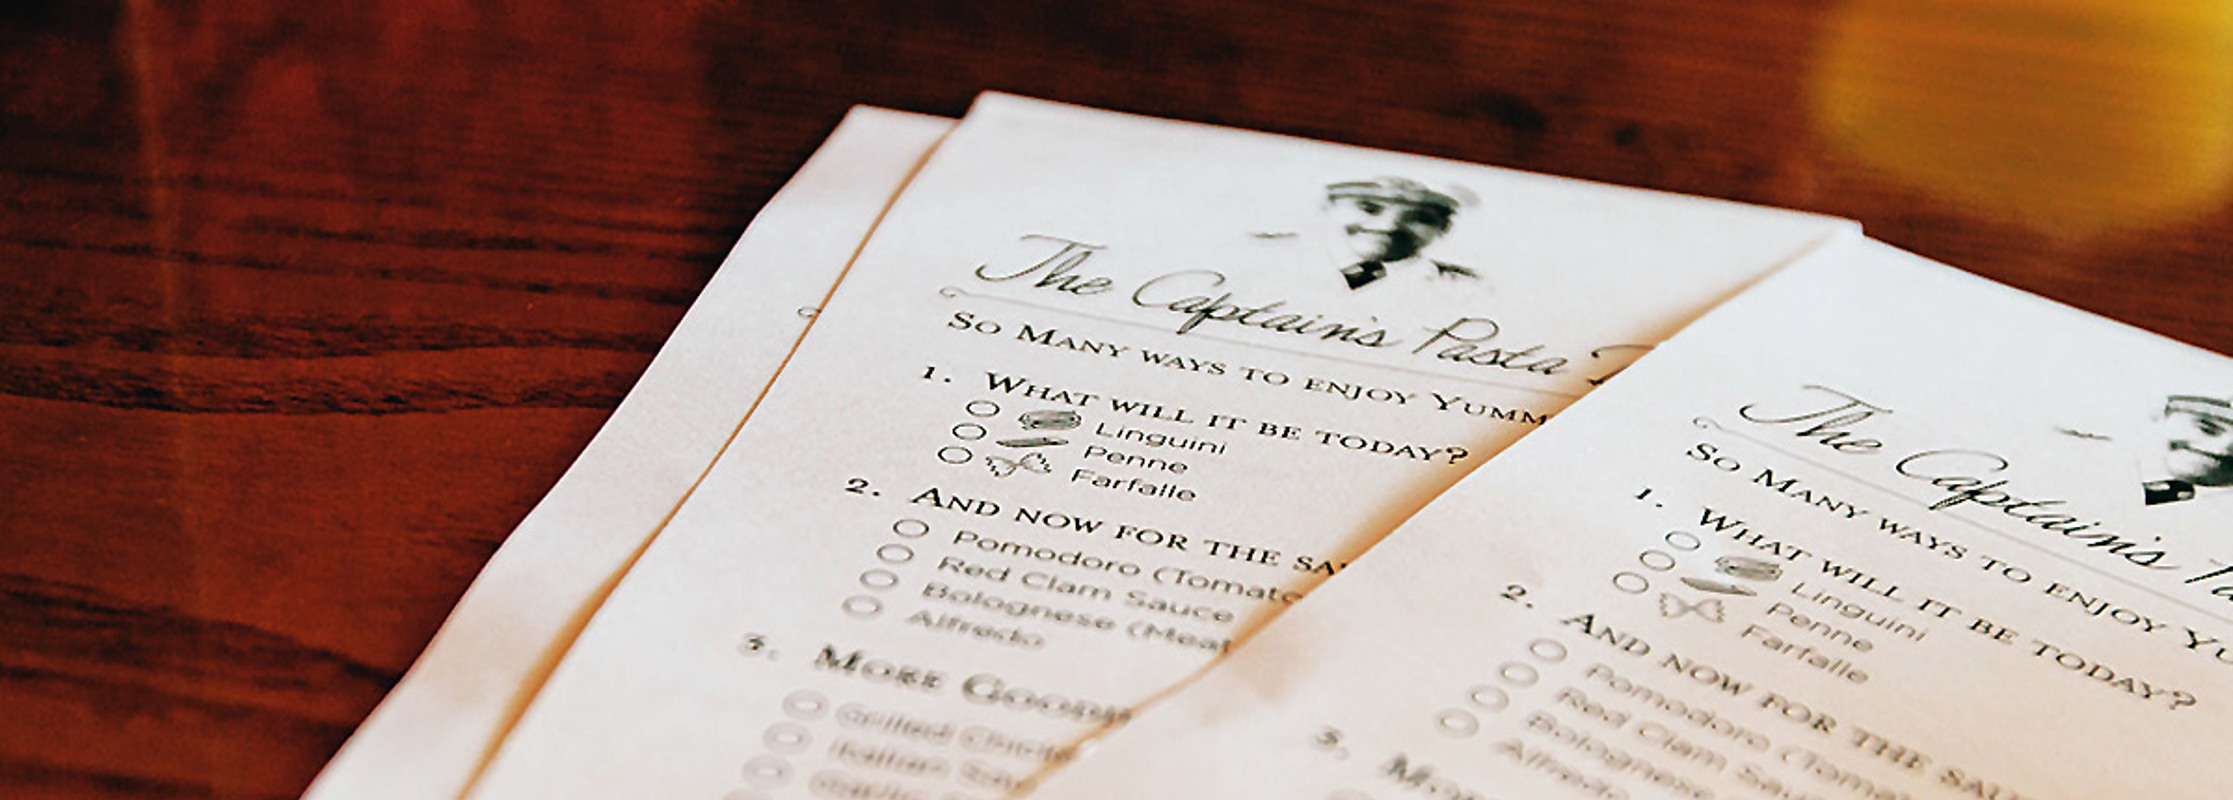 The Captain's Pasta
So Many ways to enjoy Yumm
1. What will it be today?
Linguini
Penne
Farfalle
2. And now for the sa
Pomodoro (Tomato
Red Clam Sauce
Bolognese (Meat
Alfredo
3. More Goodi
Grilled Chicke
Italian Sau
The Captain's Pa
So Many ways to enjoy Yu
1. What will it be today?
Linguini
Penne
Farfalle
2. And now for the sau
Pomodoro (Tomat
Red Clam Sau
Bolognese
Alfredo
3. Mor